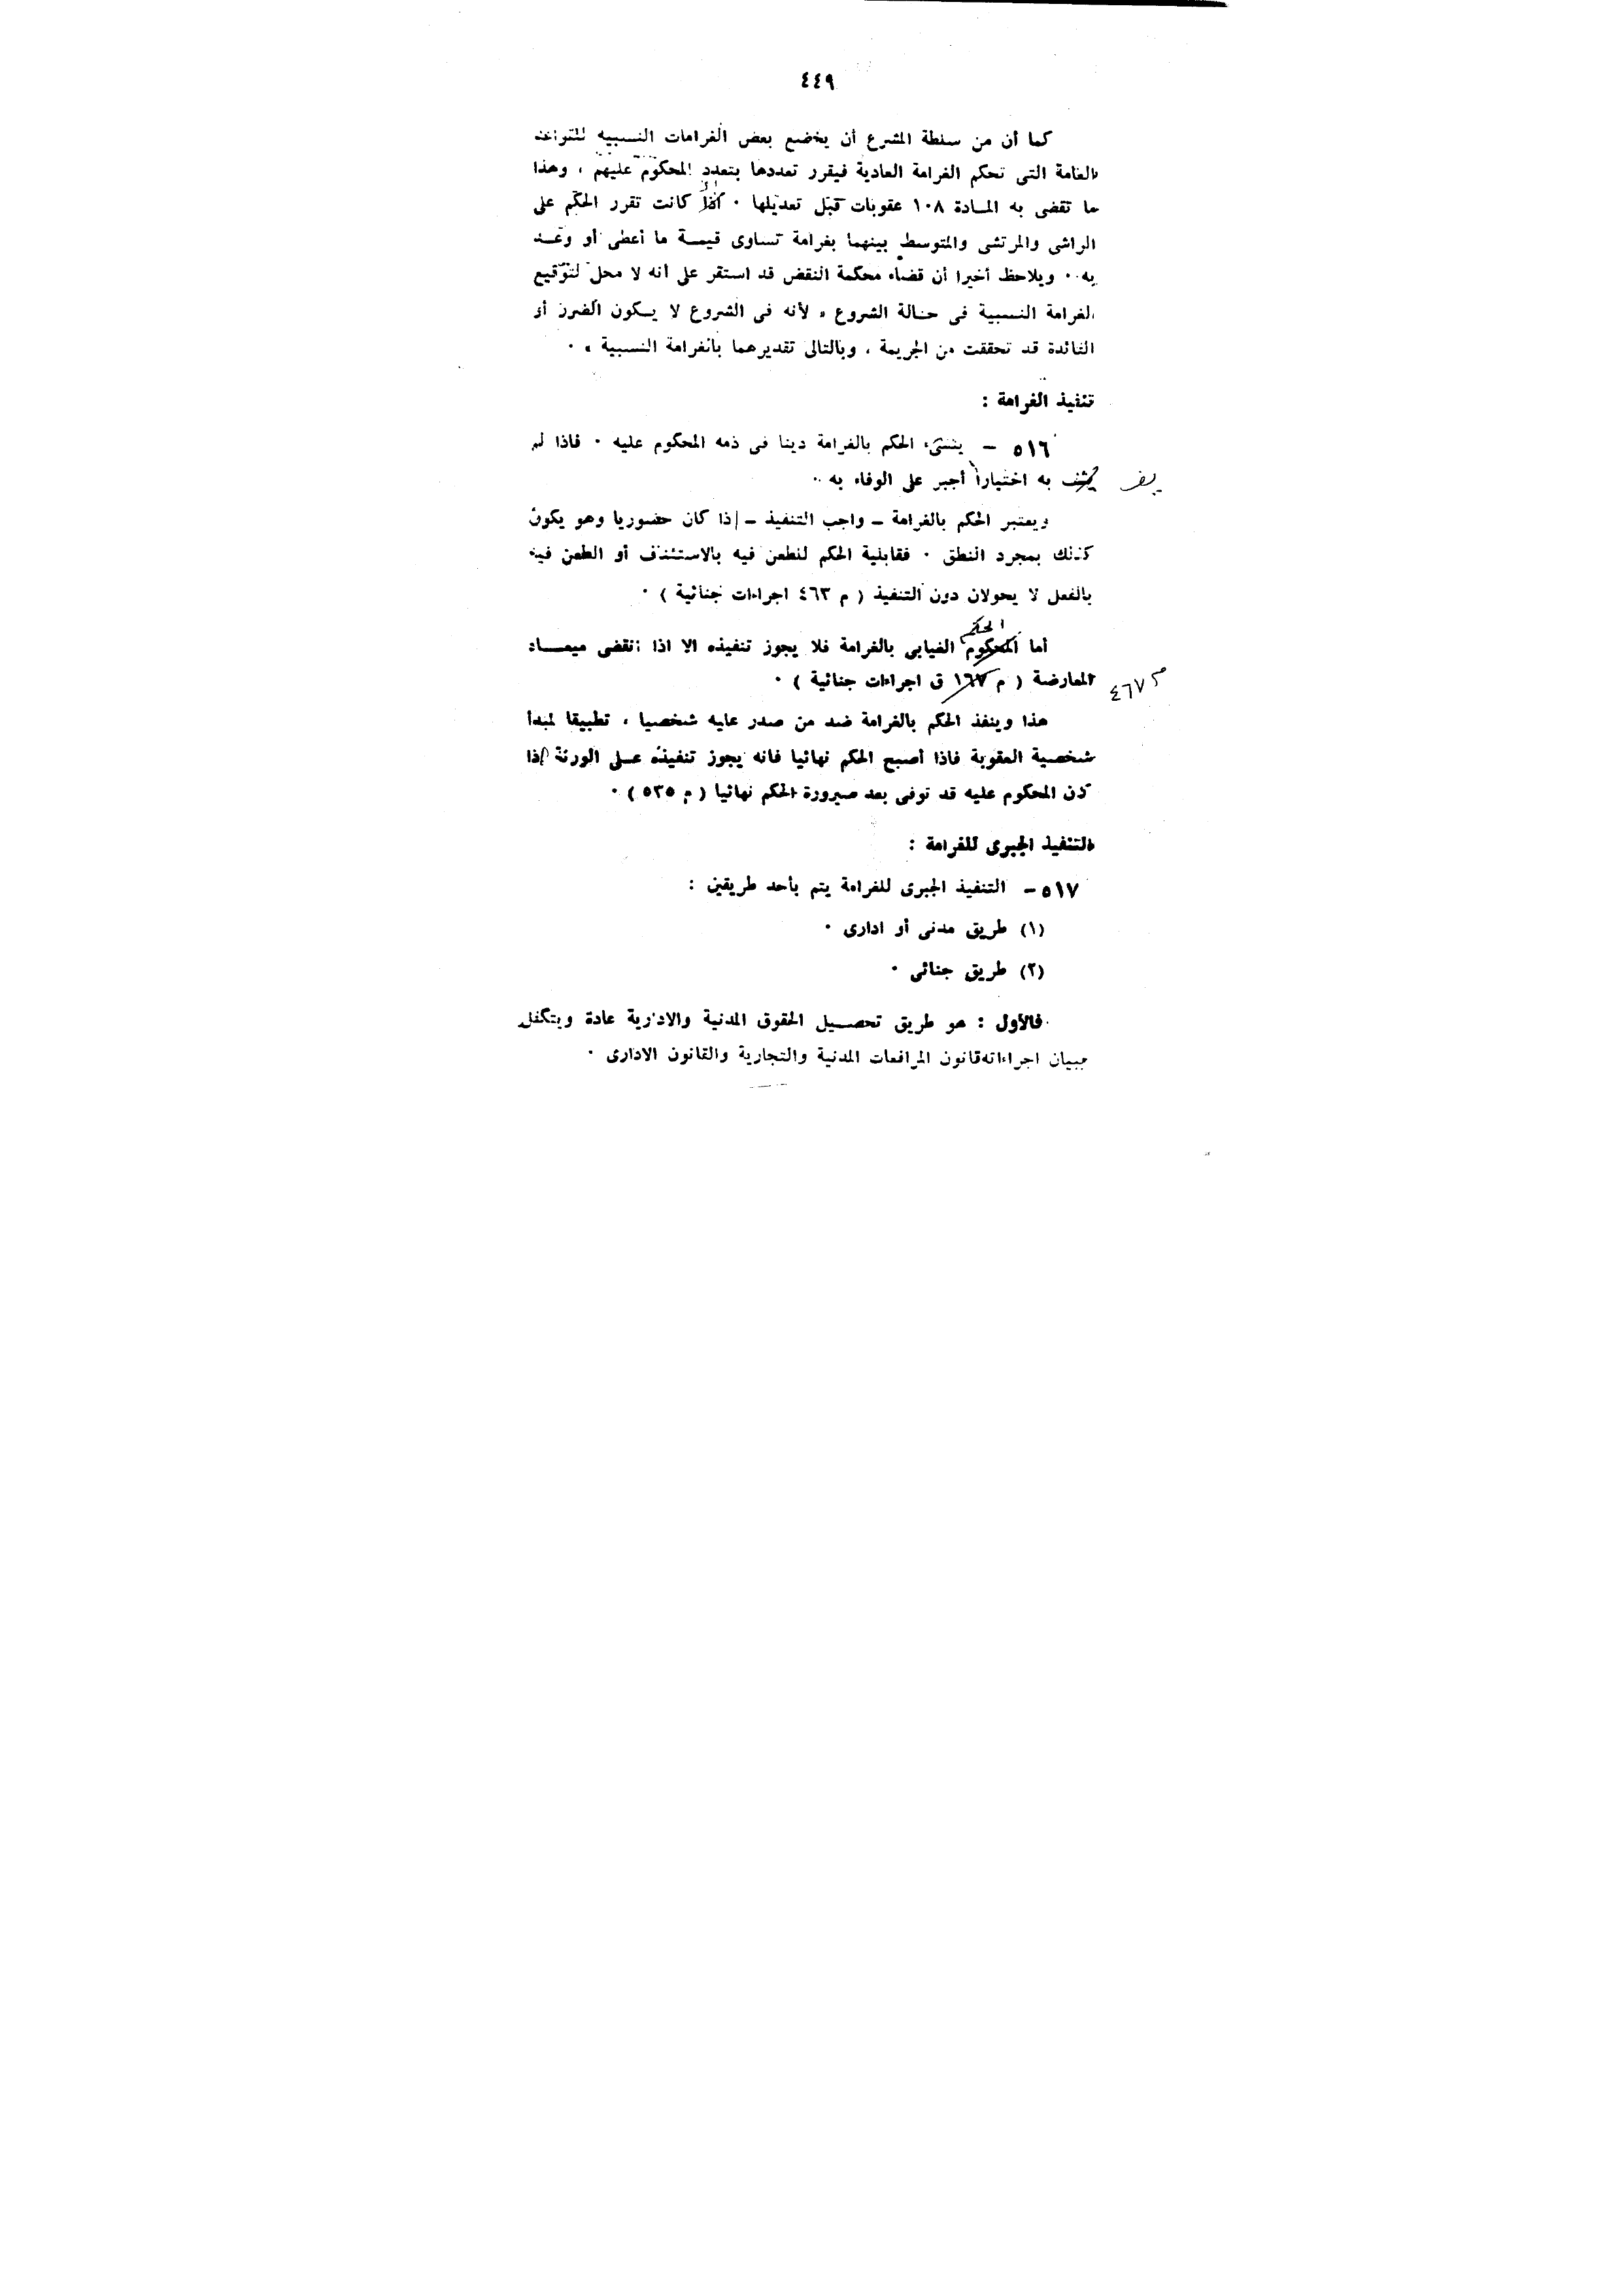 ٤٤٩
كما أن من سلطة المشرع أن يخضع بعض الغرامات النسبية للقواعد
العامة التى تحكم الغرامة العادية فيقرر تعددها بتعدد المحكوم عليهم ، وهذا
ما تقضى به المادة ١٠٨ عقوبات قبل تعديلها . كانت تقرر الحكم على
الراشى والمرتشى والمتوسط بينهما بغرامة تساوى قيمة ما أعطى أو وعد
به . ويلاحظ أخيرا أن قضاء محكمة النقض قد استقر على أنه لا محل لتوقيع
الغرامة النسبية فى حالة الشروع « لأنه فى الشروع لا يكون الضرر أو
الفائدة قد تحققت من الجريمة ، وبالتالى تقديرهما بالغرامة النسبية » .
تنفيذ الغرامة :
٥١٦ – ينشىء الحكم بالغرامة دينا فى ذمه المحكوم عليه . فاذا لم
يف به اختيارا أجبر على الوفاء به .
ويعتبر الحكم بالغرامة – واجب التنفيذ – إذا كان حضوريا وهو يكون
كذلك بمجرد النطق . فقابلية الحكم للطعن فيه بالاستئناف أو الطعن فيه
بالفعل لا يحولان دون التنفيذ ( م ٤٦٣ اجراءات جنائية ) .
الحكم
أما المحكوم الغيابى بالغرامة فلا يجوز تنفيذه الا اذا انقضى ميعاد
المعارضة ( م ١٦٧ ق اجراءات جنائية ) . م ٤٦٧
هذا وينفذ الحكم بالغرامة ضد من صدر عليه شخصيا ، تطبيقا لمبدأ
شخصية العقوبة فاذا أصبح الحكم نهائيا فانه يجوز تنفيذه على الورثة إذا
كان المحكوم عليه قد توفى بعد صيرورة الحكم نهائيا ( م ٥٣٥ ) .
التنفيذ الجبرى للغرامة :
٥١٧ – التنفيذ الجبرى للغرامة يتم بأحد طريقين :
(١) طريق مدنى أو ادارى .
(٢) طريق جنائى .
فالأول : هو طريق تحصيل الحقوق المدنية والادارية عادة ويتكفل
ببيان اجراءاته قانون المرافعات المدنية والتجارية والقانون الادارى .